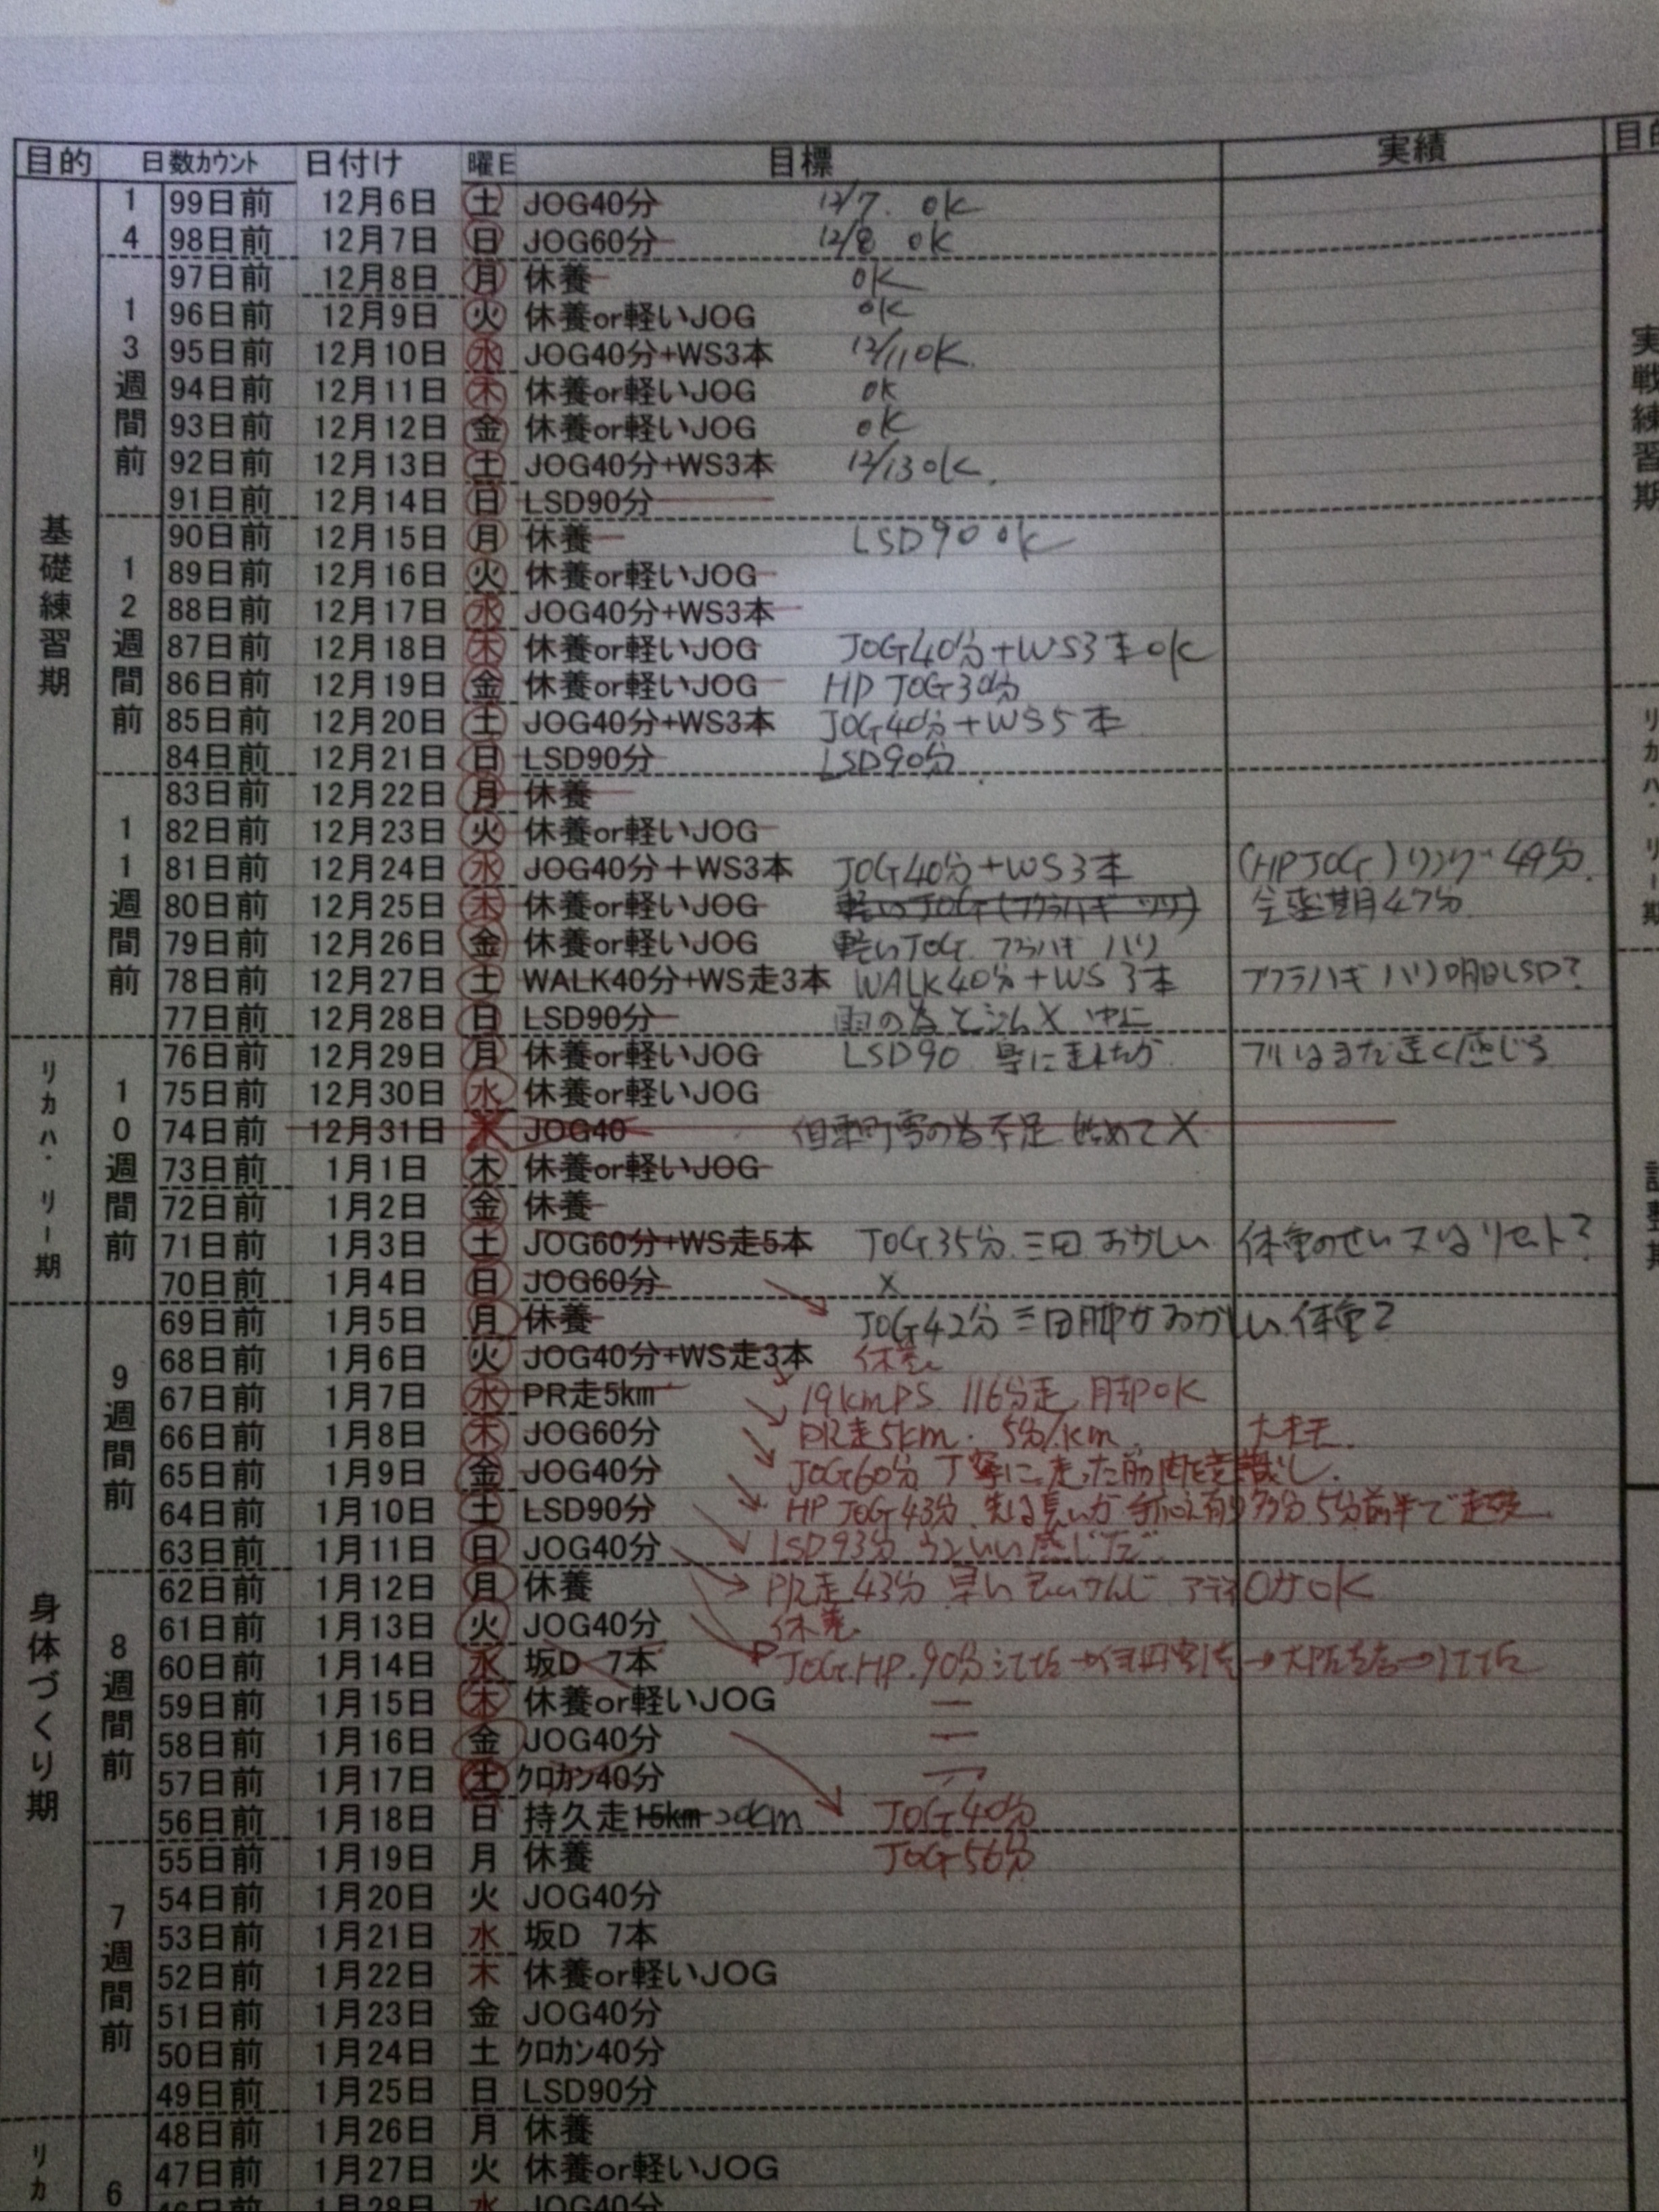 目的 日数カウント 日付け 曜日 目標 実績
基礎練習期
リカバリー期
身体づくり期
リカ
14
13週間前
12週間前
11週間前
10週間前
9週間前
8週間前
7週間前
6
99日前 12月6日 土 JOG40分 12/7. OK
98日前 12月7日 日 JOG60分 12/8 OK
97日前 12月8日 月 休養 OK
96日前 12月9日 火 休養or軽いJOG OK
95日前 12月10日 水 JOG40分+WS3本 12/11 OK.
94日前 12月11日 木 休養or軽いJOG OK
93日前 12月12日 金 休養or軽いJOG OK
92日前 12月13日 土 JOG40分+WS3本 12/13 OK.
91日前 12月14日 日 LSD90分
90日前 12月15日 月 休養 LSD90 OK
89日前 12月16日 火 休養or軽いJOG
88日前 12月17日 水 JOG40分+WS3本
87日前 12月18日 木 休養or軽いJOG JOG40分+WS3本 OK
86日前 12月19日 金 休養or軽いJOG HP JOG30分
85日前 12月20日 土 JOG40分+WS3本 JOG40分+WS5本
84日前 12月21日 日 LSD90分 LSD90分
83日前 12月22日 月 休養
82日前 12月23日 火 休養or軽いJOG
81日前 12月24日 水 JOG40分+WS3本 JOG40分+WS3本 (HPJOG) 49分.
80日前 12月25日 木 休養or軽いJOG 軽いJOG (フクラハギ 47分
79日前 12月26日 金 休養or軽いJOG 軽いJOG フクラハギ ハリ
78日前 12月27日 土 WALK40分+WS走3本 WALK40分+WS3本 フクラハギ ハリ 明日LSD?
77日前 12月28日 日 LSD90分 雨の為
76日前 12月29日 月 休養or軽いJOG LSD90 フルはまだ遠く感じる
75日前 12月30日 水 休養or軽いJOG
74日前 12月31日 JOG40 但東町雪の為不足 始めて×
73日前 1月1日 木 休養or軽いJOG
72日前 1月2日 金 休養
71日前 1月3日 土 JOG60分+WS走5本 JOG35分 三田 おかしい 体重のせい又はリセット?
70日前 1月4日 日 JOG60分 ×
69日前 1月5日 月 休養 JOG42分 三田脚がおかしい.体重?
68日前 1月6日 火 JOG40分+WS走3本 休養
67日前 1月7日 水 PR走5km 19km PS 116分走 脚OK
66日前 1月8日 木 JOG60分 PR走5km. 5分/km
65日前 1月9日 金 JOG40分 JOG60分 丁寧に走った
64日前 1月10日 土 LSD90分 HP JOG43分 先は長いが 5分前半で
63日前 1月11日 日 JOG40分 LSD93分 いい感じだ
62日前 1月12日 月 休養 PR走43分 早い OK
61日前 1月13日 火 JOG40分 休養
60日前 1月14日 水 坂D 7本 JOG.HP.90分 江坂→ →江坂
59日前 1月15日 木 休養or軽いJOG 一
58日前 1月16日 金 JOG40分 二
57日前 1月17日 土 クロカン40分
56日前 1月18日 日 持久走15km→20km JOG40分
55日前 1月19日 月 休養 JOG56分
54日前 1月20日 火 JOG40分
53日前 1月21日 水 坂D 7本
52日前 1月22日 木 休養or軽いJOG
51日前 1月23日 金 JOG40分
50日前 1月24日 土 クロカン40分
49日前 1月25日 日 LSD90分
48日前 1月26日 月 休養
47日前 1月27日 火 休養or軽いJOG
46日前 1月28日 水 JOG40分
実戦練習期
リカバリー期